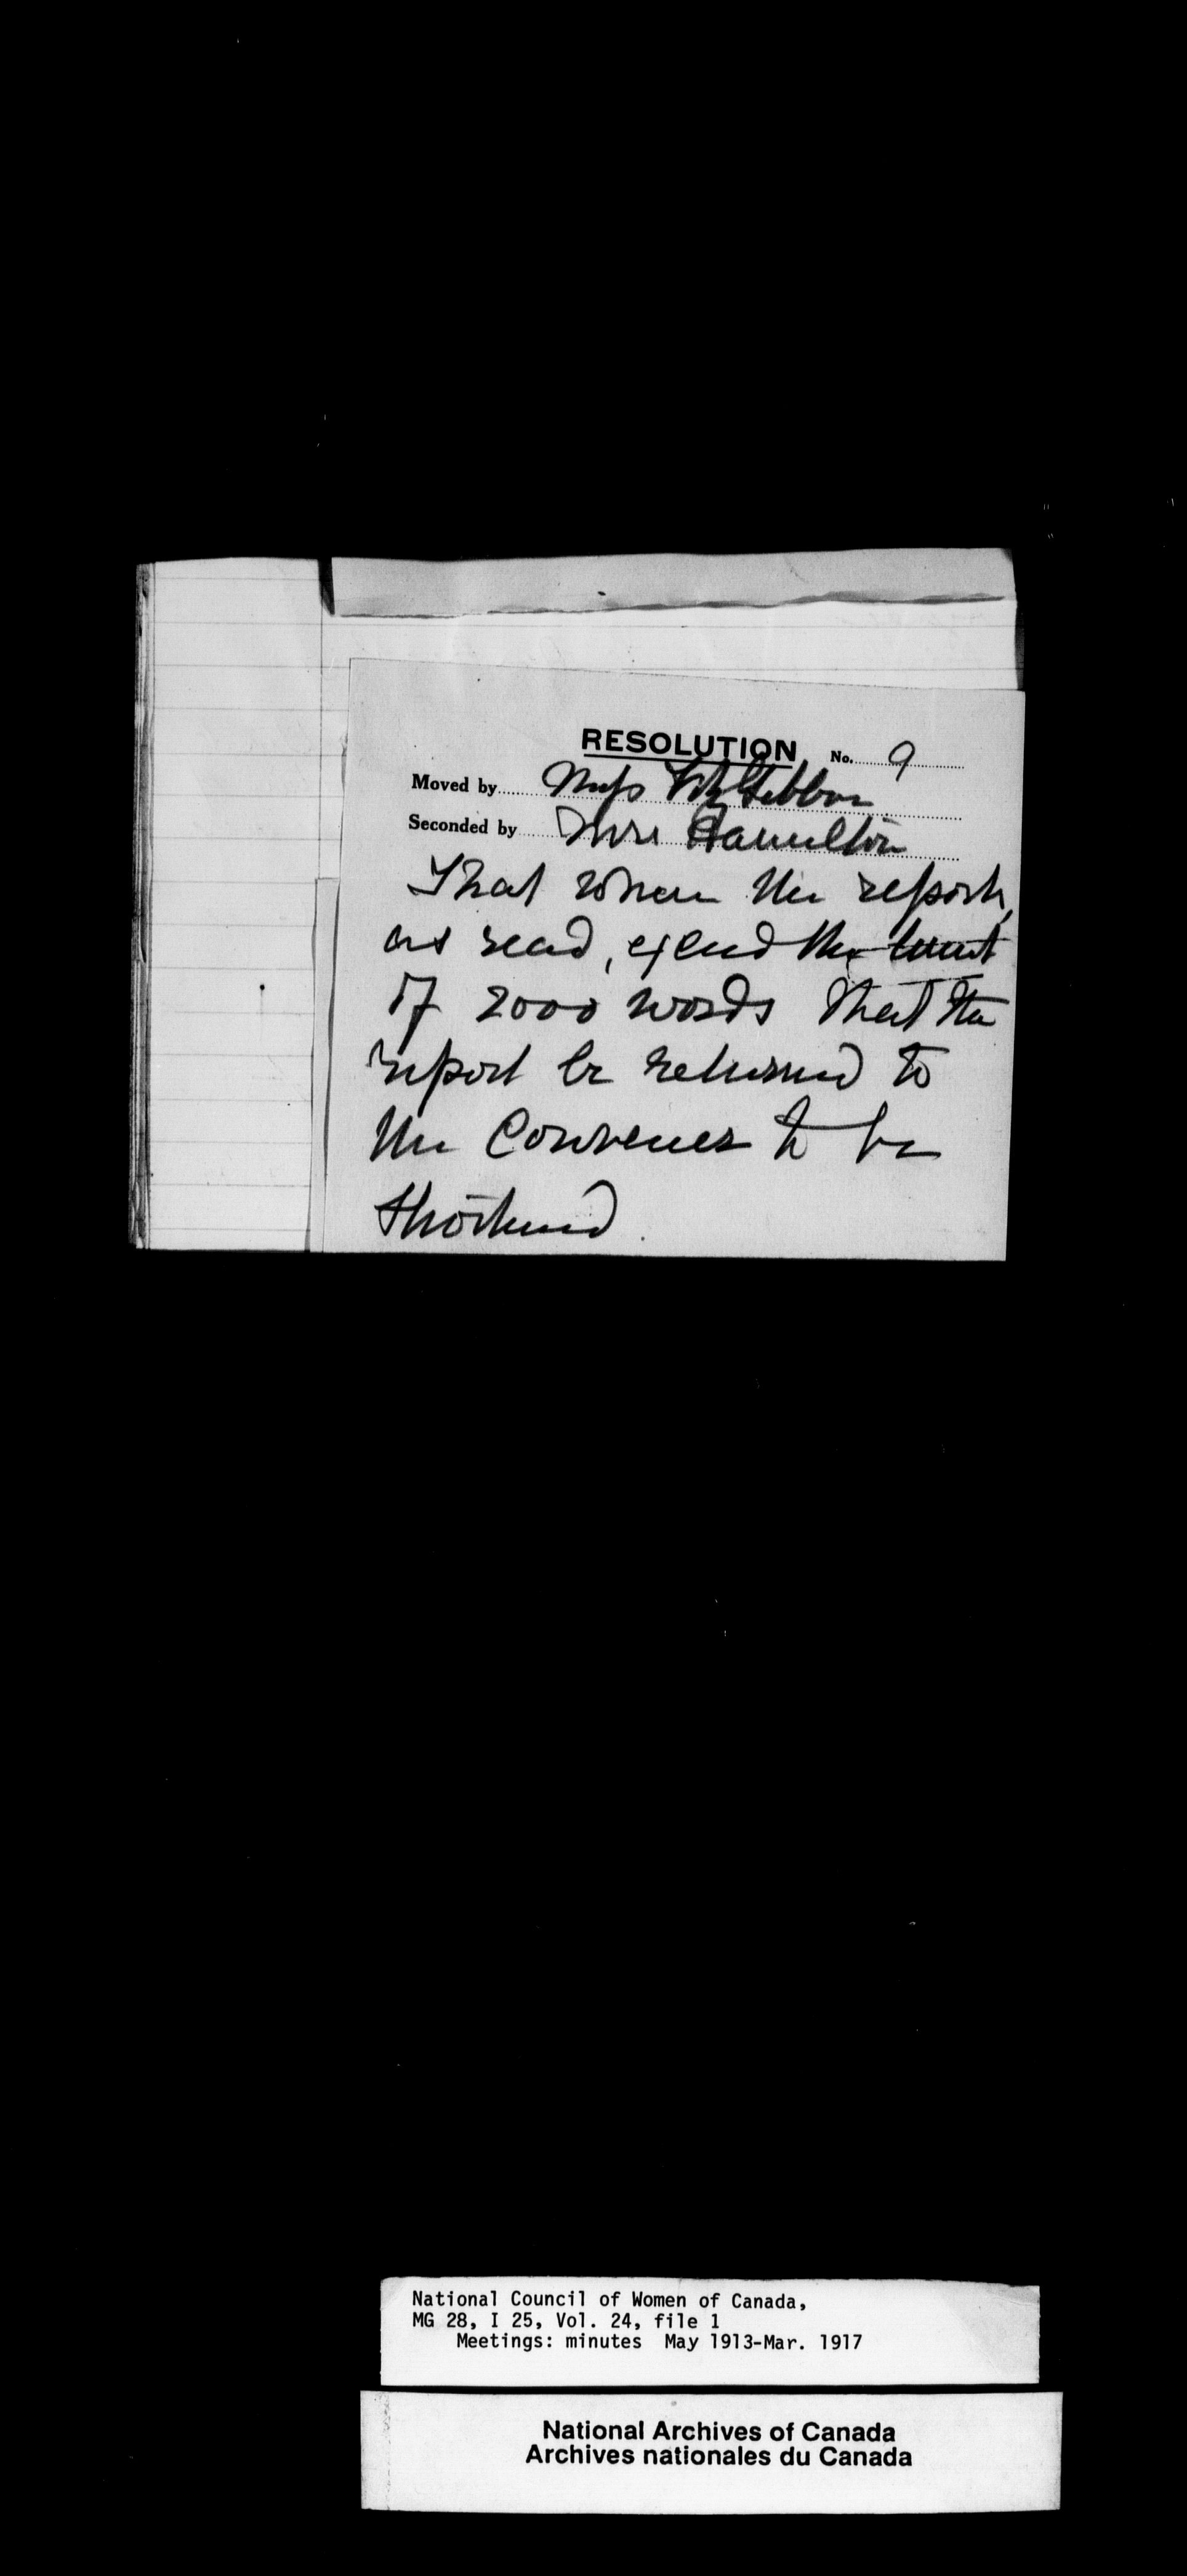 RESOLUTION No. 9
Moved by Miss FitzGibbon
Seconded by Mrs Hamilton
That when the reports,
as read, exceed the limit
of 2000 words that the
report be returned to
the Convener to be
shortened.
National Council of Women of Canada,
MG 28, I 25, Vol. 24, file 1
Meetings: minutes May 1913-Mar. 1917
National Archives of Canada
Archives nationales du Canada